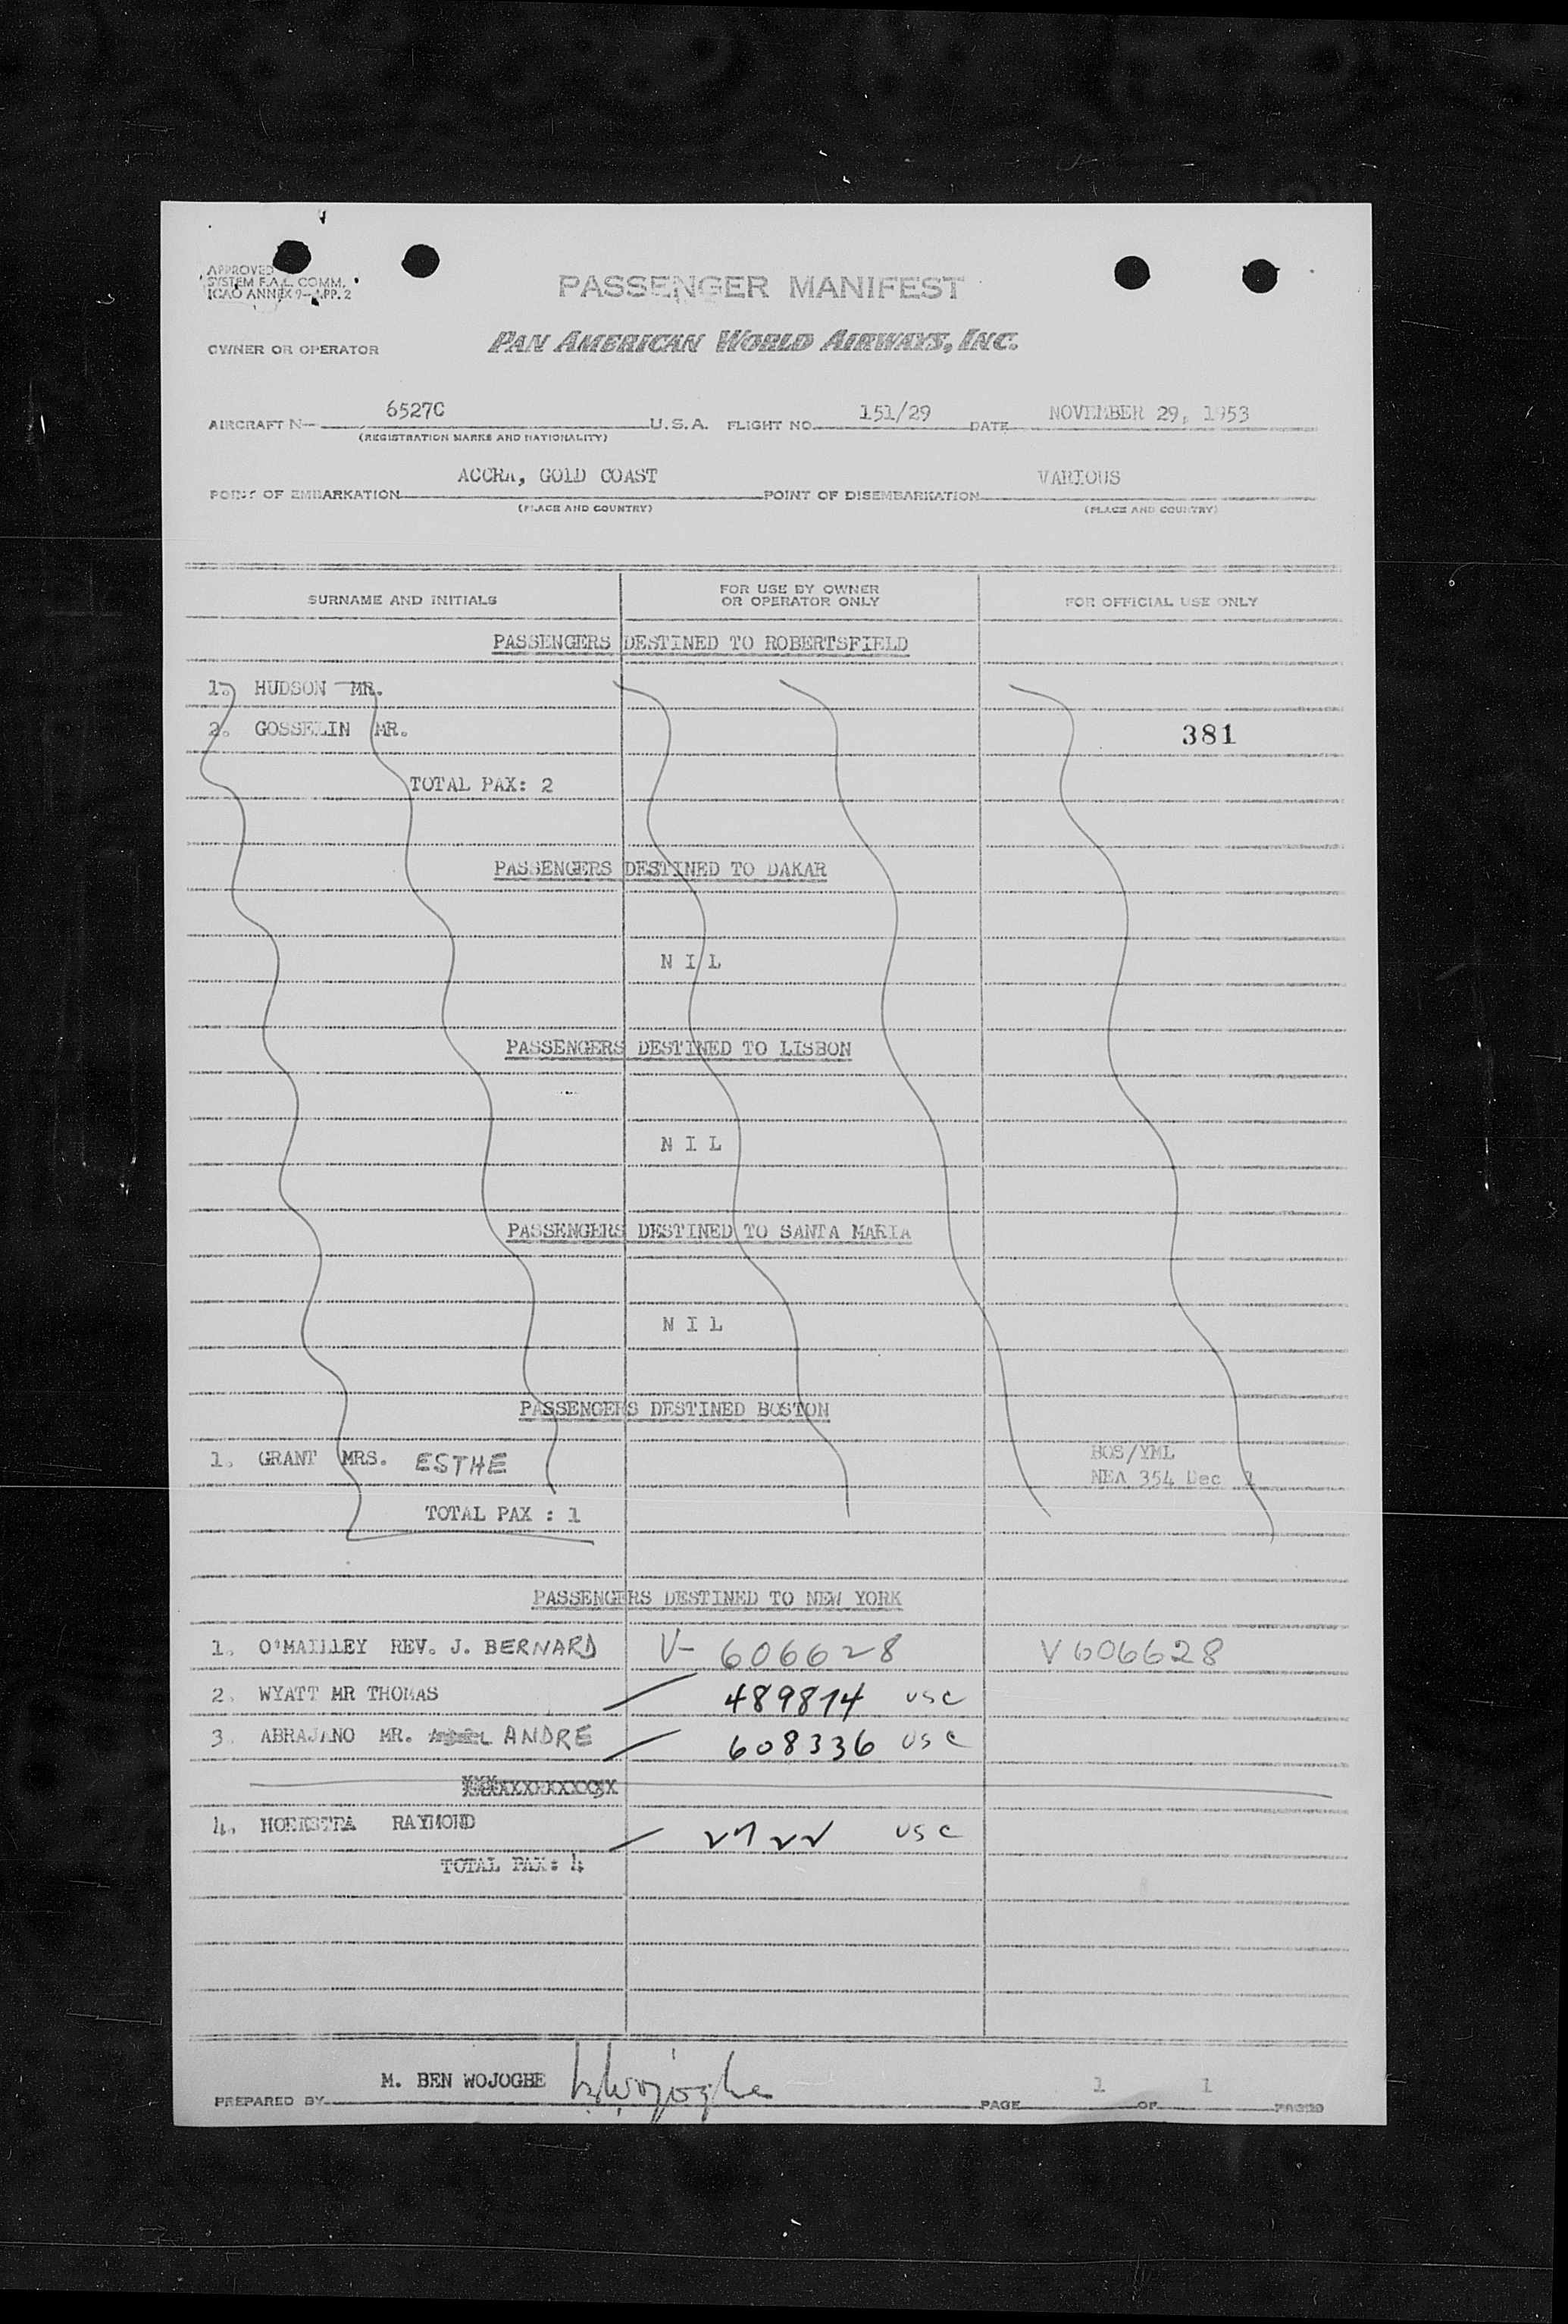 APPROVED
SYSTEM F.A.L. COMM.
ICAO ANNEX 9—APP. 2
PASSENGER MANIFEST
OWNER OR OPERATOR PAN AMERICAN WORLD AIRWAYS, INC.
AIRCRAFT N— 6527C U.S.A. FLIGHT NO. 151/29 DATE NOVEMBER 29, 1953
(REGISTRATION MARKS AND NATIONALITY)
POINT OF EMBARKATION ACCRA, GOLD COAST POINT OF DISEMBARKATION VARIOUS
(PLACE AND COUNTRY) (PLACE AND COUNTRY)
SURNAME AND INITIALS FOR USE BY OWNER OR OPERATOR ONLY FOR OFFICIAL USE ONLY
PASSENGERS DESTINED TO ROBERTSFIELD
1. HUDSON MR.
2. GOSSELIN MR. 381
TOTAL PAX: 2
PASSENGERS DESTINED TO DAKAR
N I L
PASSENGERS DESTINED TO LISBON
N I L
PASSENGERS DESTINED TO SANTA MARIA
N I L
PASSENGERS DESTINED BOSTON
1. GRANT MRS. ESTHE BOS/YML
NEA 354 Dec 1
TOTAL PAX : 1
PASSENGERS DESTINED TO NEW YORK
1. O'MAILLEY REV. J. BERNARD V- 606628 V606628
2. WYATT MR THOMAS 489814 USC
3. ABRAJANO MR. ANDRE 608336 USC
4. HOEKSTRA RAYMOND USC
TOTAL PAX: 4
PREPARED BY M. BEN WOJOGBE PAGE 1 OF 1 PAGES